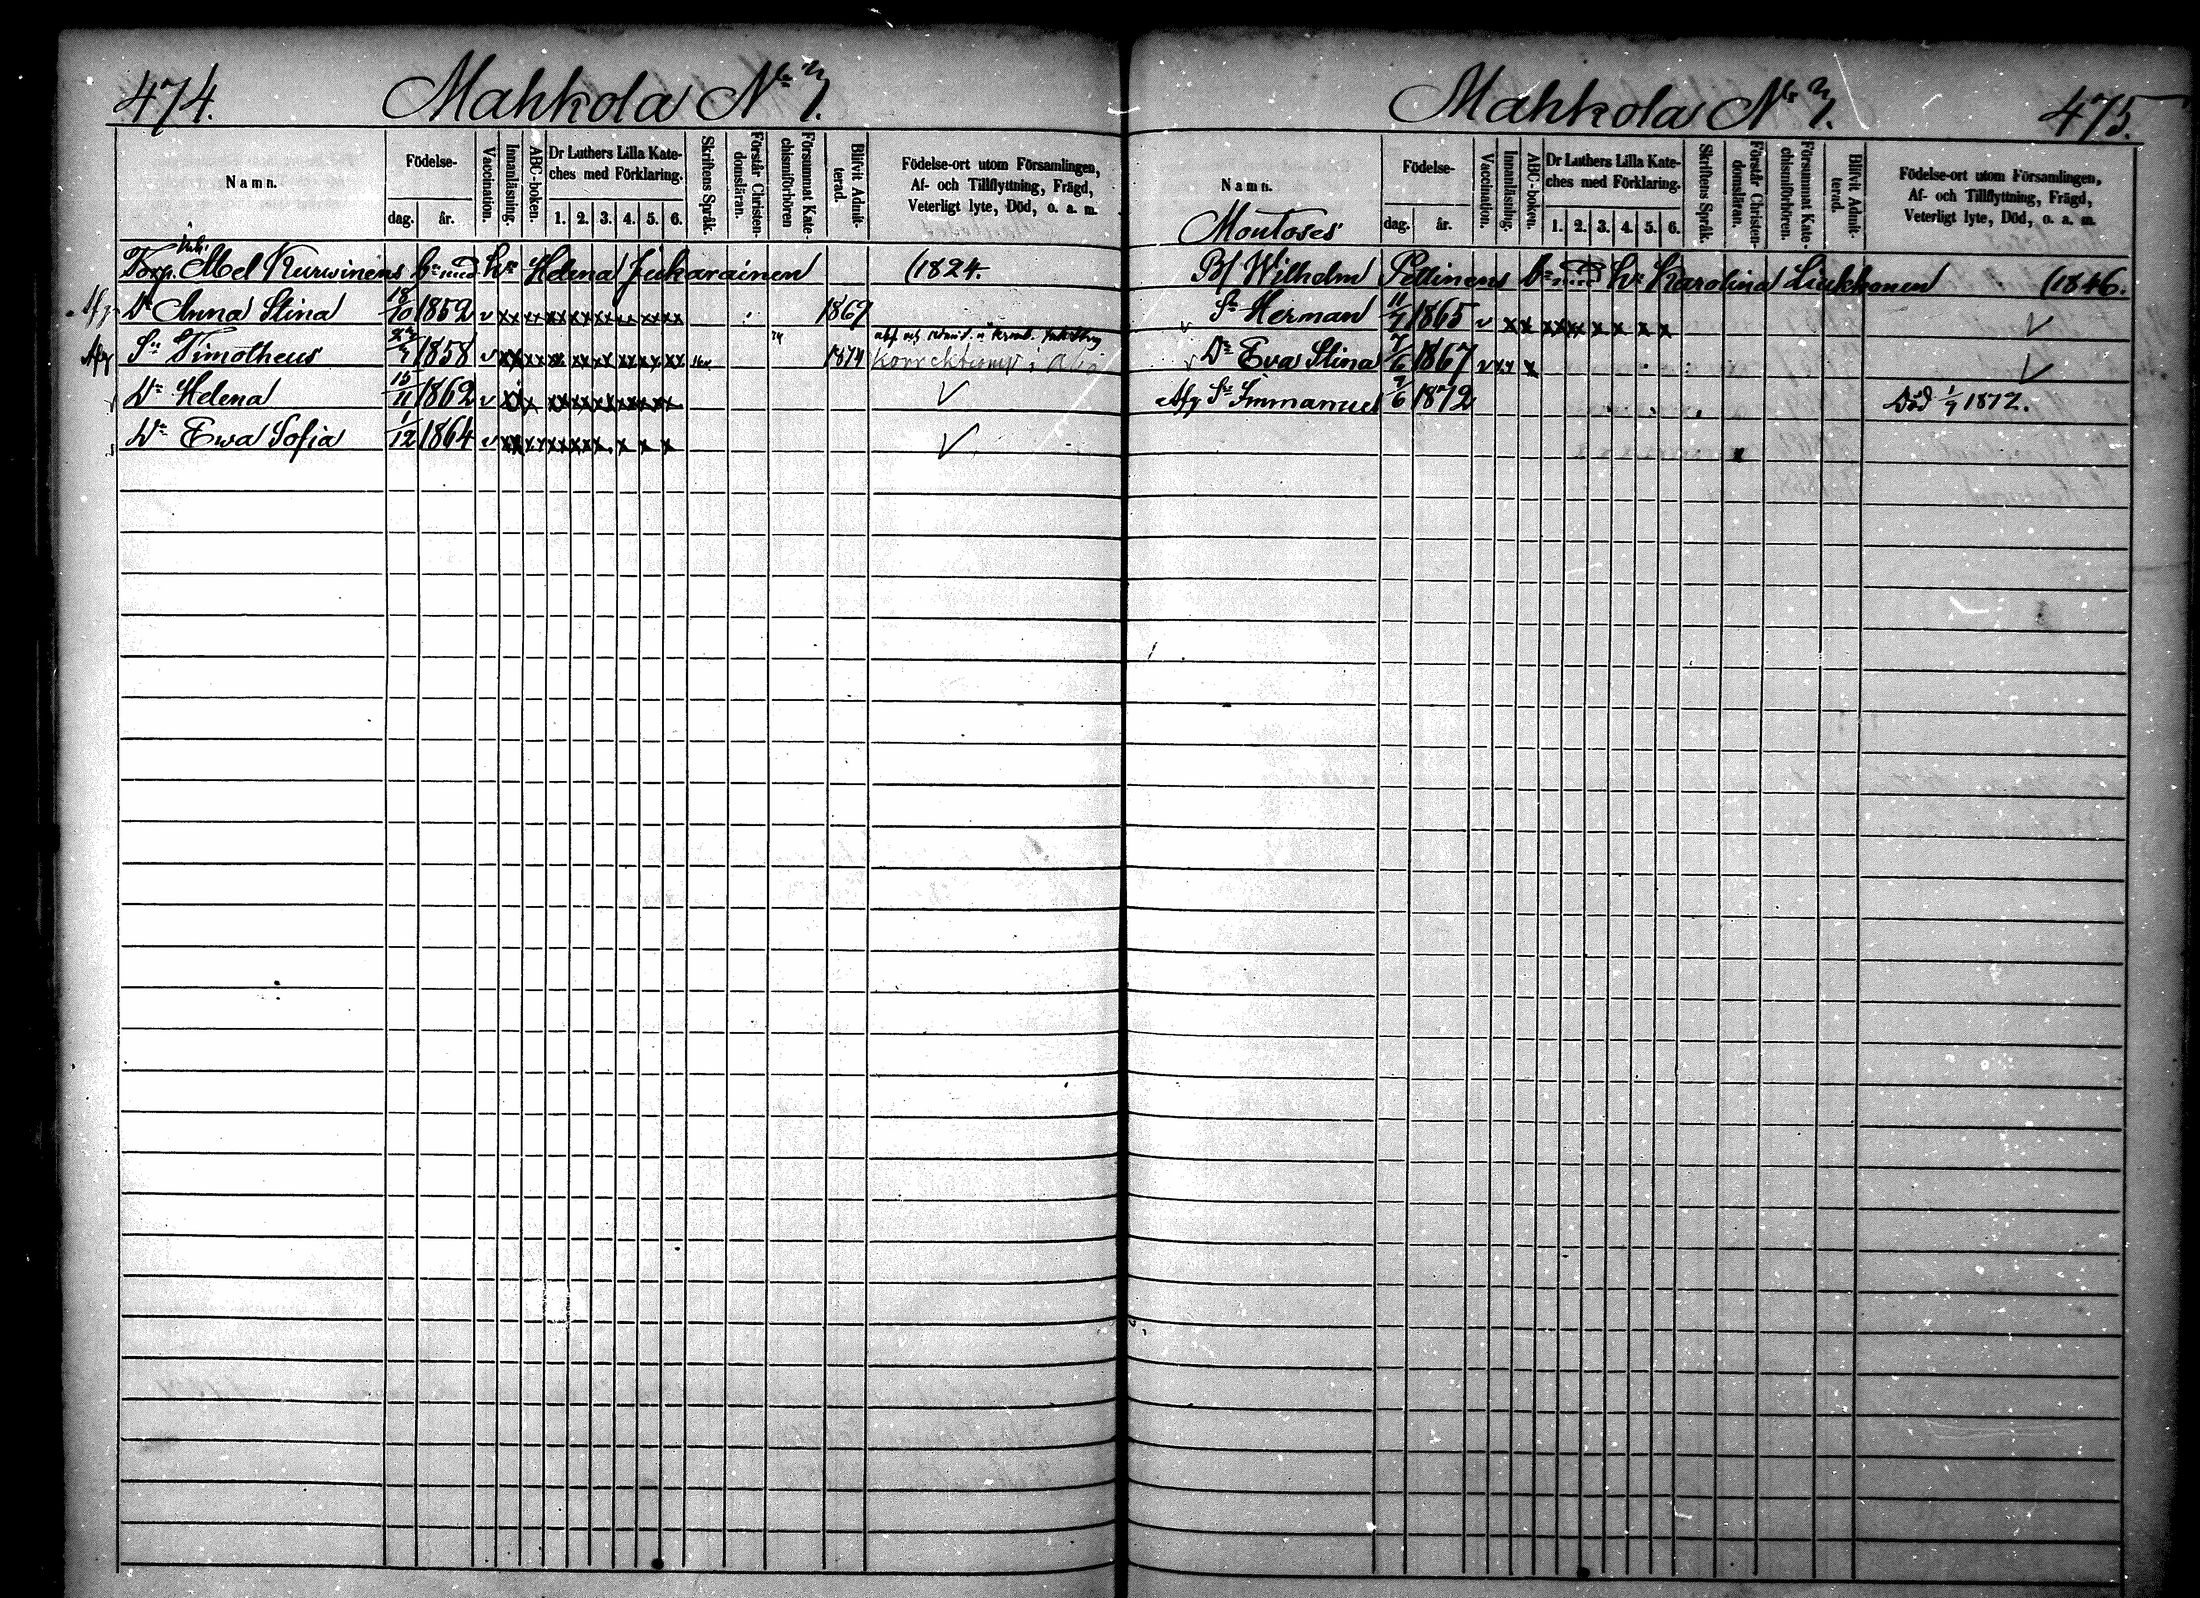 474.
Mahkola No 7.
Namn.
Födelse-
dag.
år.
Vaccination.
Innanläsning.
ABC-boken.
Dr Luthers Lilla Kate-
ches med Förklaring.
1. 2. 3. 4. 5. 6.
Skriftens Språk.
Förstår Christen-
domsläran.
Försummat Kate-
chismiförhören
Blifvit Admit-
terad.
Födelse-ort utom Församlingen,
Af- och Tillflyttning, Frägd,
Veterligt lyte, Död, o. a. m.
Torp. Abel Kurwinens br med hr Helena Jukarainen (1824
Afg Dr Anna Stina 18/10 1852 v xx xx xx xx xx xx xx xx 1869
Afg Sn Timotheus 1858 v xx xx xx xx xx xx xx xx 1874
Dr Helena 15/11 1862 v xx x xx xx xx xx xx xx √
Dr Ewa Sofia 1/12 1864 v xx xx xx xx x x x x √
Mahkola No 7.
475.
Namn.
Födelse-
dag.
år.
Vaccination.
Innanläsning.
ABC-boken.
Dr Luthers Lilla Kate-
ches med Förklaring.
1. 2. 3. 4. 5. 6.
Skriftens Språk.
Förstår Christen-
domsläran.
Försummat Kate-
chismiförhören.
Blifvit Admit-
terad.
Födelse-ort utom Församlingen,
Af- och Tillflyttning, Frägd,
Veterligt lyte, Död, o. a. m.
Montoses
B/ Wilhelm Peltinens br hr Karolina Liukkonen (1846.
Sn Herman 11/4 1865 v x x xx xx x x x x √
Dr Eva Stina 7/6 1867 v xx x √
Afg Sn Immanuel 7/6 1872 Död 1/7 1872.